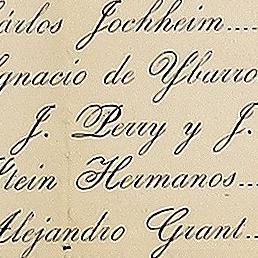 Cárlos Jochheim....
Ignacio de Yburro
J. Perry y J.
Stein Hermanos...
Alejandro Grant..